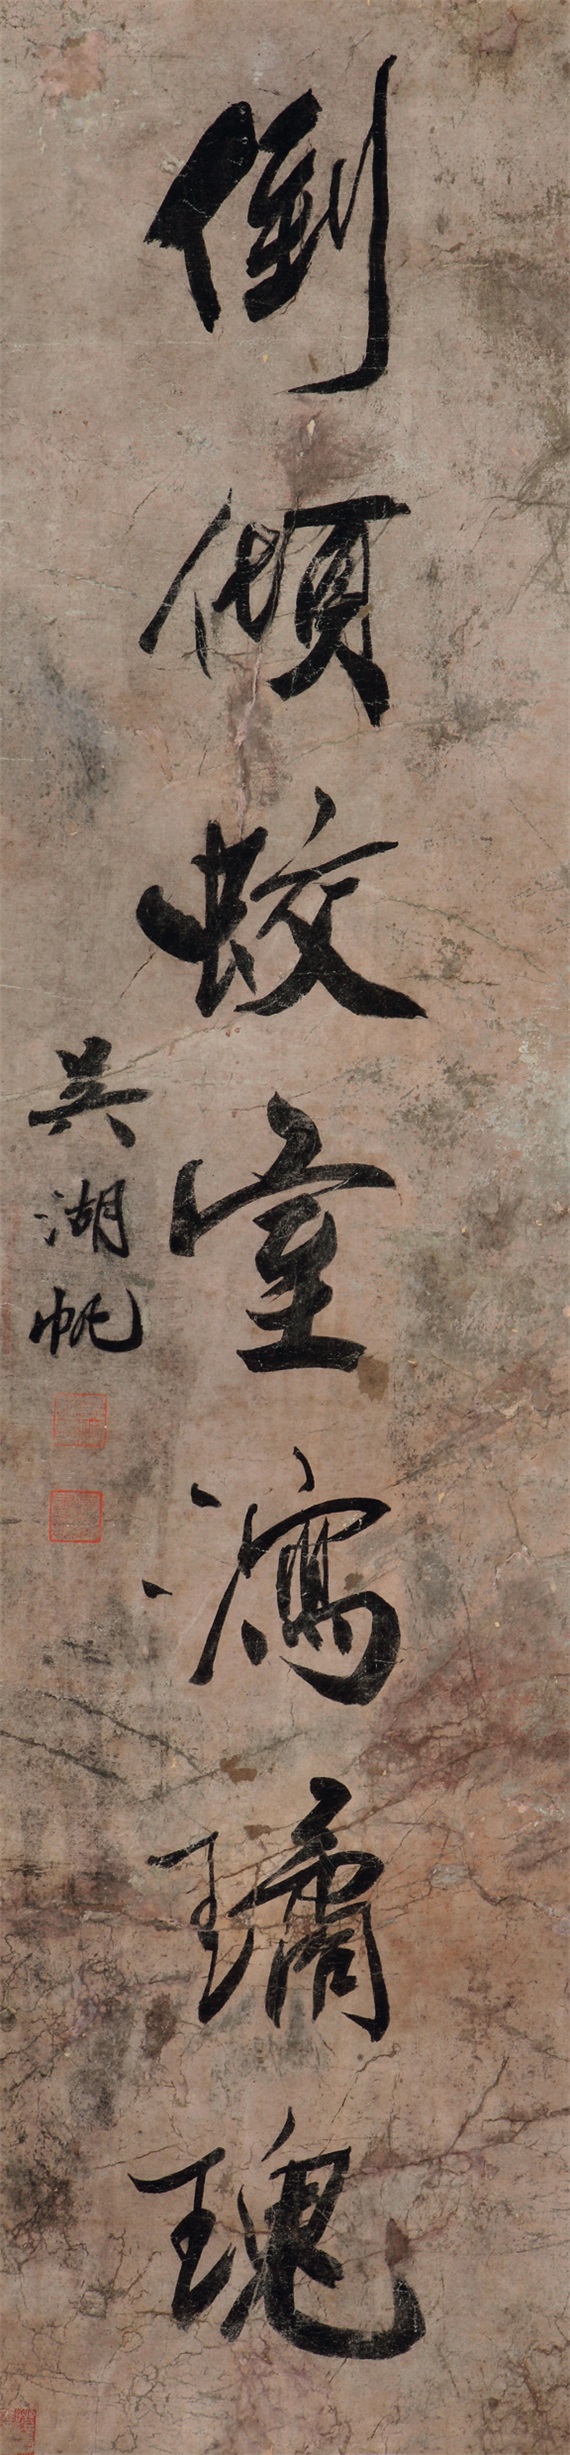 倒傾蛟室瀉璚瑰
吳湖帆